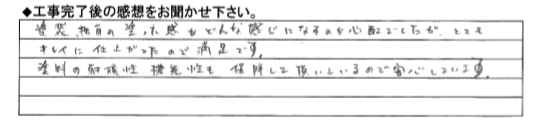 ◆工事完了後の感想をお聞かせ下さい。
塗装独自の塗った感もどんな感じになるのか心配でしたが、とても
キレイに仕上がったので満足です。
塗料の耐候性機能性も保障して頂いているので安心しています。